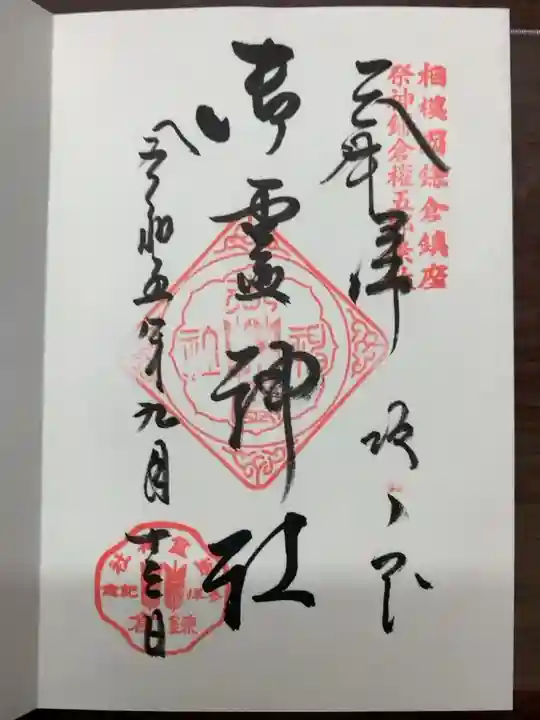 相模國鎌倉鎮座
祭神鎌倉權五
奉拝 坂ノ下
御霊神社
令和五年九月十三日